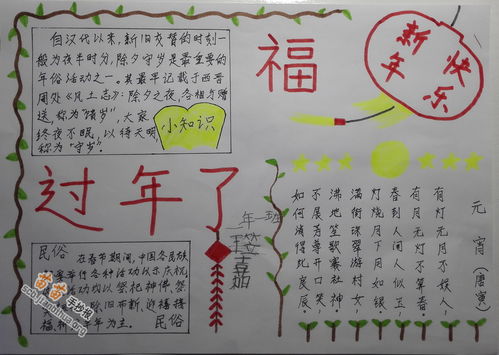 自汉代以来，新旧交替的时刻一
般为夜半时分，除夕守岁是最重要的
年俗活动之一。其最早记载于西晋
周处《风土志》：除夕之夜，各相与赠
送，称为“馈岁”，大家
终夜不眠，以待天明
称为“守岁”。
小知识
福
新年
快乐
过年了
年一班
嘉
元宵（唐寅）
有灯无月不娱人，
有月无灯不算春。
春到人间人似玉，
灯烧月下月如银。
满街珠翠游村女，
沸地笙歌赛社神。
不展芳尊开口笑，
如何消得此良辰。
民俗
在春节期间，中国各民族
举行各种活动以示庆祝，
活动均以祭祀神佛、祭
除旧布新、迎禧接
福、祈年为主。
民俗
苗苗手抄报